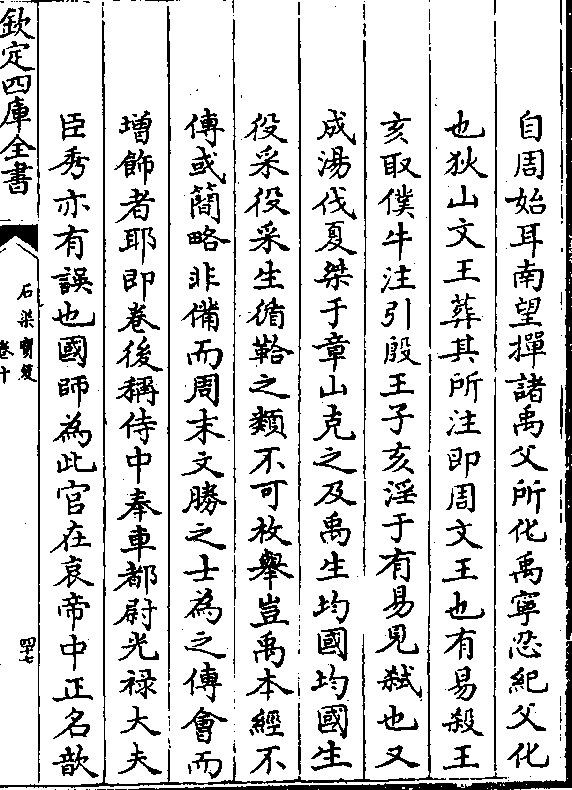 自周始耳南望墠諸禹父所化禹寧忍紀父化
也狄山文王葬其所注即周文王也有易殺王
亥取僕牛注引殷王子亥淫于有易見弑也又
成湯伐夏桀于章山克之及禹生均國均國生
役采役采生循鞈之類不可枚舉豈禹本經不
傳或簡略非備而周末文勝之士為之傳會而
增飾者耶即卷後稱侍中奉車都尉光禄大夫
臣秀亦有誤也國師為此官在哀帝中正名歆
欽定四庫全書
石渠寶笈
卷十
四七